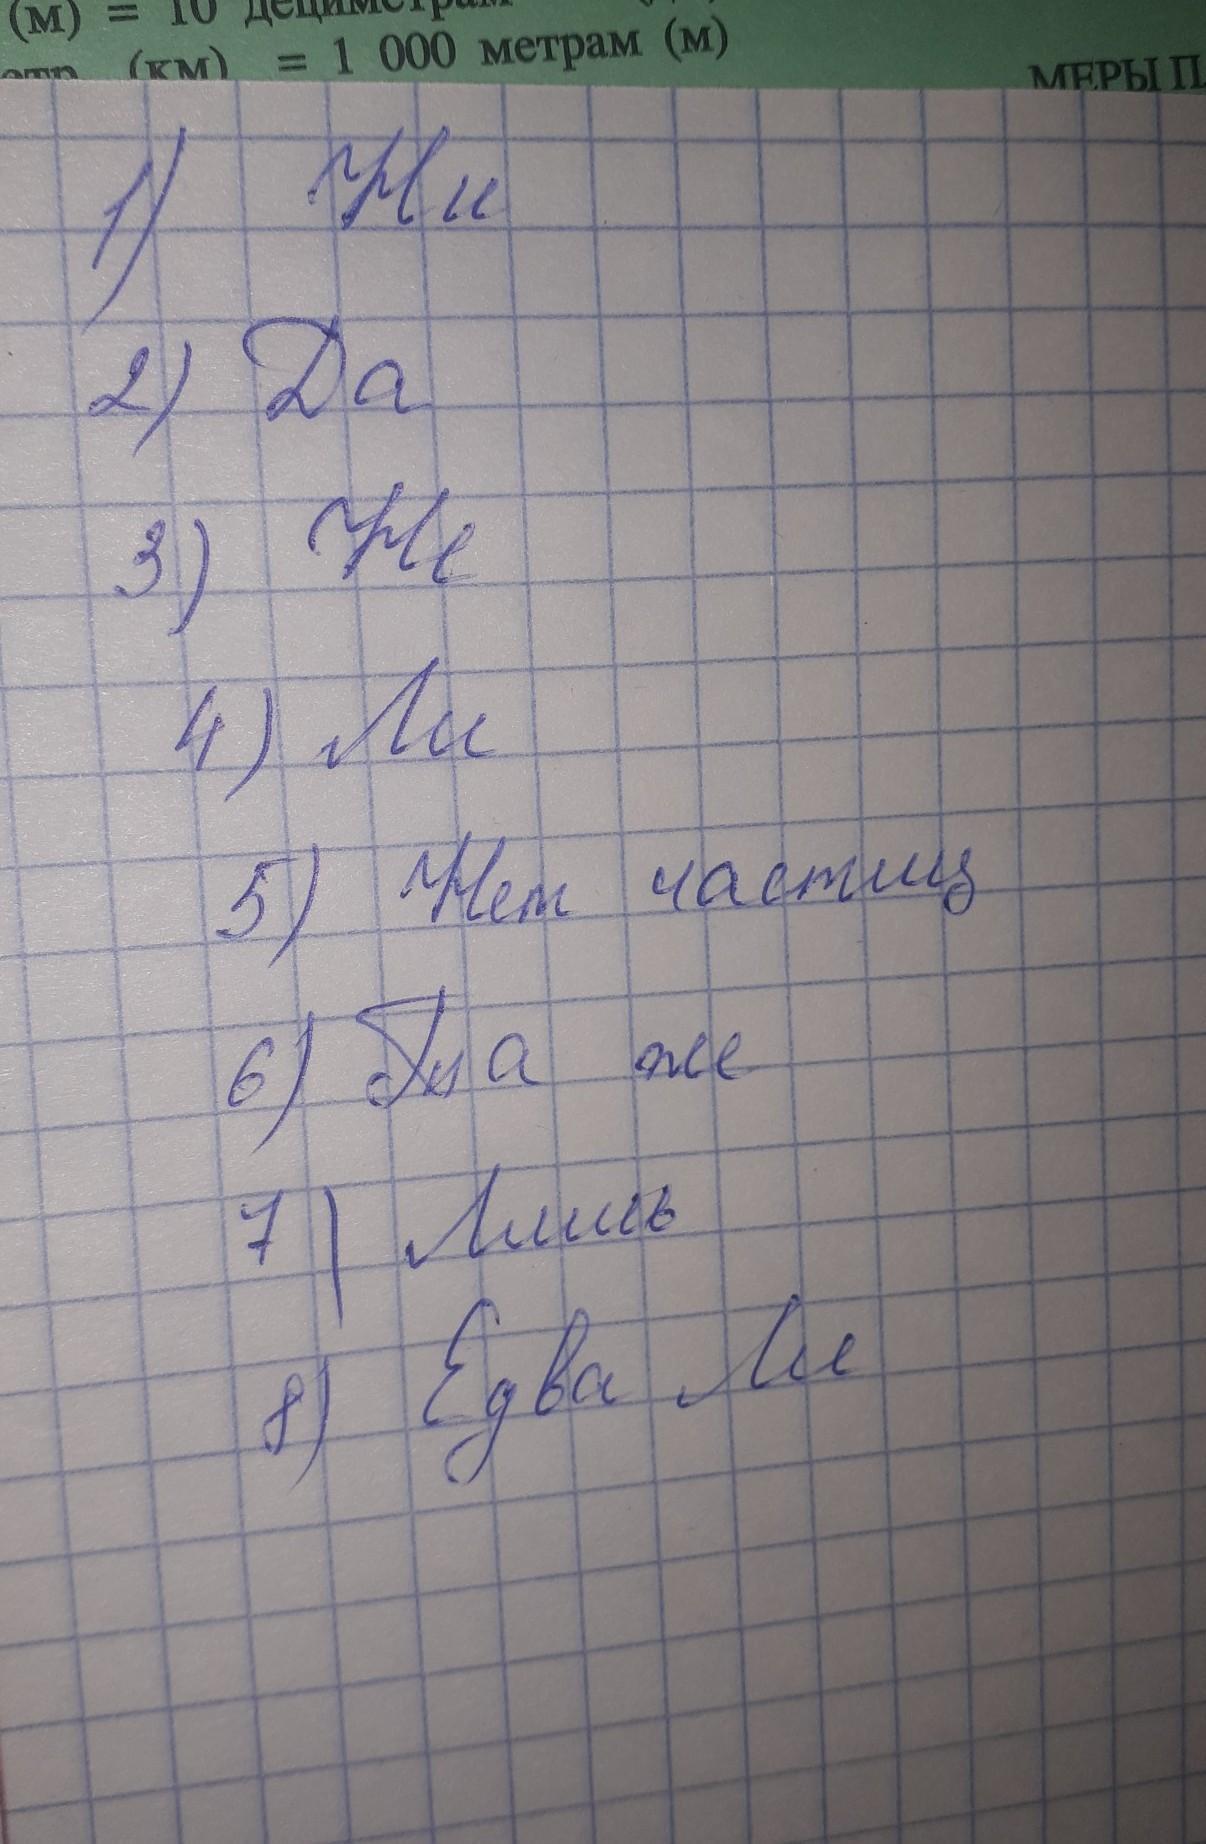 (м) = 10 дециметрам
етр (км) = 1 000 метрам (м)
МЕРЫ П
1) Ни
2) Да
3) Не
4) Ли
5) Нет частиц
6) же
7) Лишь
8) Едва Ли